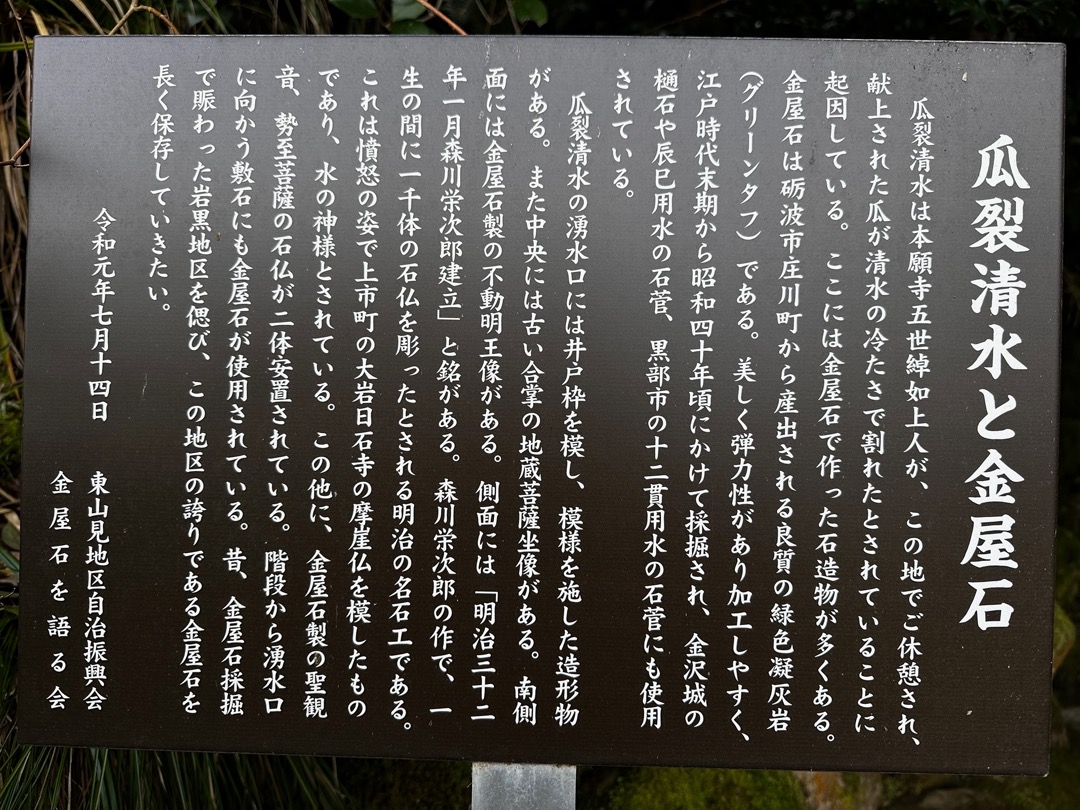 瓜裂清水と金屋石
瓜裂清水は本願寺五世綽如上人が、この地でご休憩され、
献上された瓜が清水の冷たさで割れたとされていることに
起因している。ここには金屋石で作った石造物が多くある。
金屋石は砺波市庄川町から産出される良質の緑色凝灰岩
（グリーンタフ）である。美しく弾力性があり加工しやすく、
江戸時代末期から昭和四十年頃にかけて採掘され、金沢城の
樋石や辰巳用水の石菅、黒部市の十二貫用水の石菅にも使用
されている。
瓜裂清水の湧水口には井戸枠を模し、模様を施した造形物
がある。また中央には古い合掌の地蔵菩薩坐像がある。南側
面には金屋石製の不動明王像がある。側面には「明治三十二
年一月森川栄次郎建立」と銘がある。森川栄次郎の作で、一
生の間に一千体の石仏を彫ったとされる明治の名石工である。
これは憤怒の姿で上市町の大岩日石寺の摩崖仏を模したもの
であり、水の神様とされている。この他に、金屋石製の聖観
音、勢至菩薩の石仏が二体安置されている。階段から湧水口
に向かう敷石にも金屋石が使用されている。昔、金屋石採掘
で賑わった岩黒地区を偲び、この地区の誇りである金屋石を
長く保存していきたい。
令和元年七月十四日
東山見地区自治振興会
金屋石を語る会